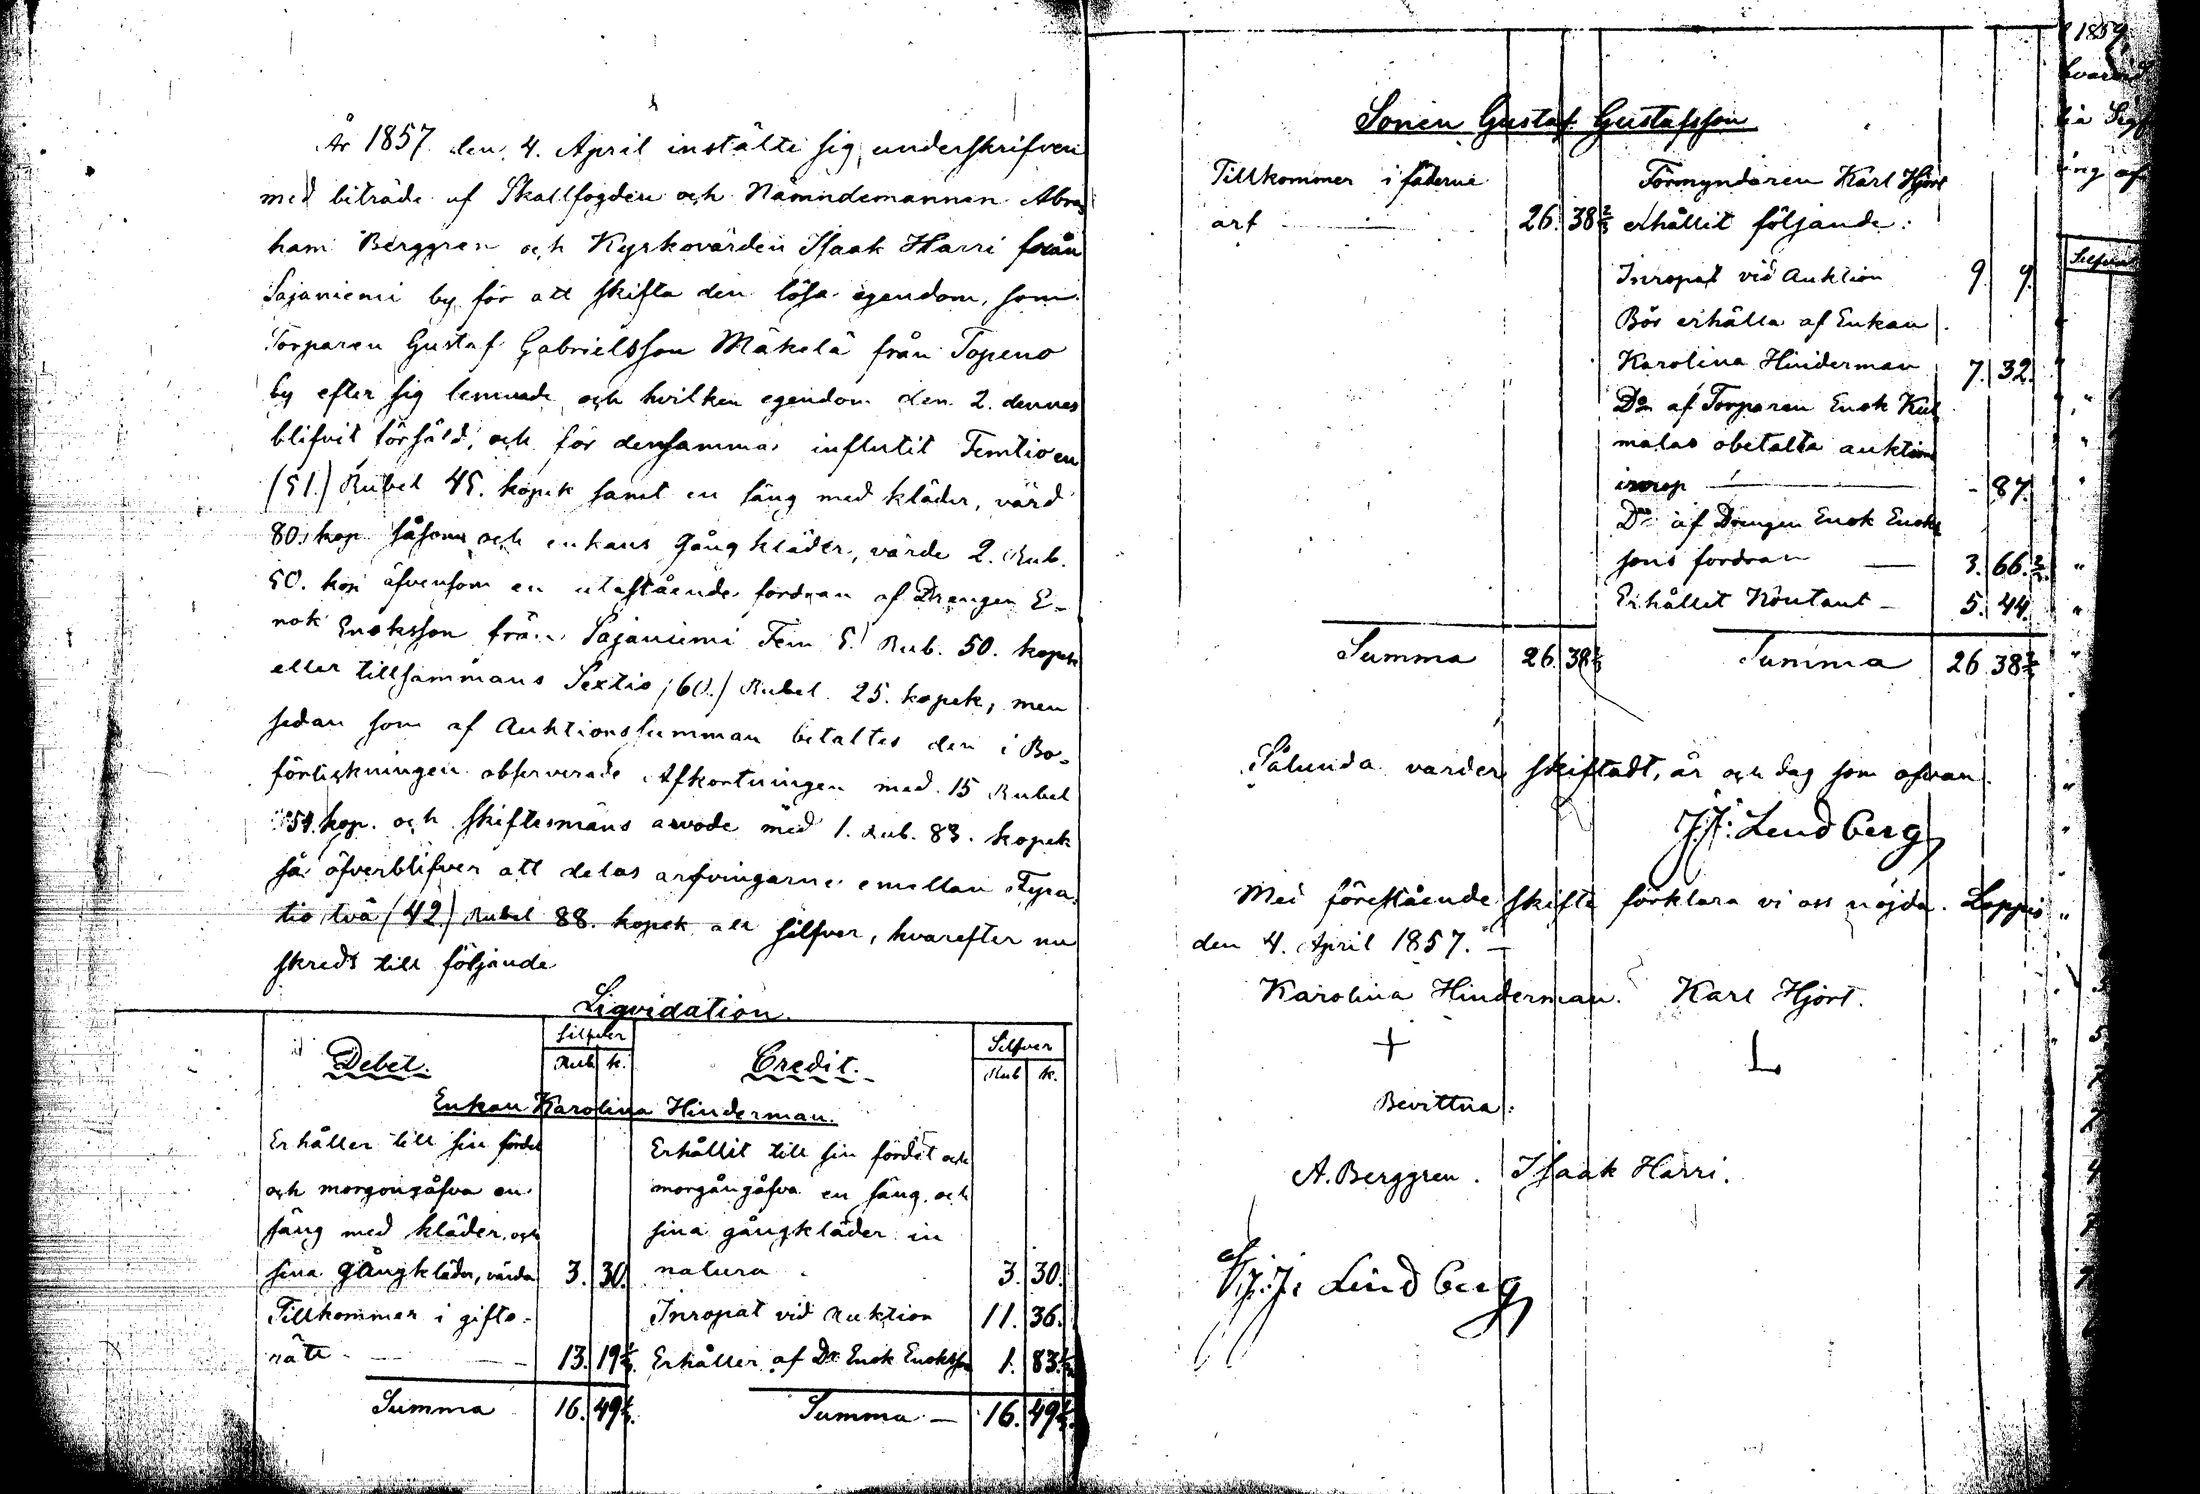 År 1857 den 4. April instälte sig underskrifven
med biträde af Skallfogden och Nämndemannen Abra
ham Berggren och Kyrkovärden Isaak Harri från
Sajaniemi by för att skifta den lösa egendom, som
Torparen Gustaf Gabrielsson Mäkelä från Topeno
by efter sig lemnade och hvilken egendom den 2. dennes
blifvit försåld, och för densamma influtit Femtioen
(51.) Rubel 45. kopek samt en säng med kläder, värd
80. kop. såsom och enkans gångkläder, värde 2. Rub.
50. kop äfvensom en utestående fordran af Drengen E-
nok Enoksson från Sajaniemi Fem 5. Rub. 50. kopek
eller tillsammans Sextio (60.) Rubel 25. kopek, men
sedan som af Auktionssumman betaltes den i Bo-
förteckningen observerade Afkortningen med 15 Rubel
54. kop. och skiftesmäns arvode med 1. Rub. 83. kopek
så öfverblifver att delas arfvingarne emellan Fyra
tio två (42.) Rubel 88. kopek allt silfver, hvarefter nu
skreds till följande
Liqvidation.
Debet. Silfver Credit. Silfver
Rub k. Rub k.
Enkan Karolina Hinderman.
Erhåller till sin fördel
och morgongåfva en
säng med kläder, och
sina gångkläder, värda 3. 30.
Tillkommer i gifto-
rätt 13. 19 1/3.
Summa 16. 49 1/3.
Erhållit till sin fördel och
morgångåfva en säng och
sina gångkläder in
natura 3. 30.
Inropat vid Auktion 11. 36.
Erhåller af Dr. Enok Enoksson 1. 83 1/3
Summa 16. 49 1/3.
Sonen Gustaf Gustafsson
Tillkommer i fäderne
arf 26. 38 2/3
Summa 26. 38 2/3
Förmyndaren Karl Hjort
erhållit följande:
Inropat vid Auktion 9. 9.
Bör erhålla af Enkan
Karolina Hinderman 7. 32.
Do af Torparen Enok
malas obetalta auktions
inrop - 87.
Do af Drengen Enok Enoks
sons fordran 3. 66. 2/3.
Erhållit Kontant 5. 44.
Summa 26 38 2/3
Sålunda varder skiftadt, år och dag som ofvan.
J. J. Lindberg
Med förestående skifte förklara vi oss nöjda. Loppis
den 4. April 1857.
Karolina Hinderman. Karl Hjort.
Bevittna:
A. Berggren. Isaak Harri.
J. J. Lindberg
1859